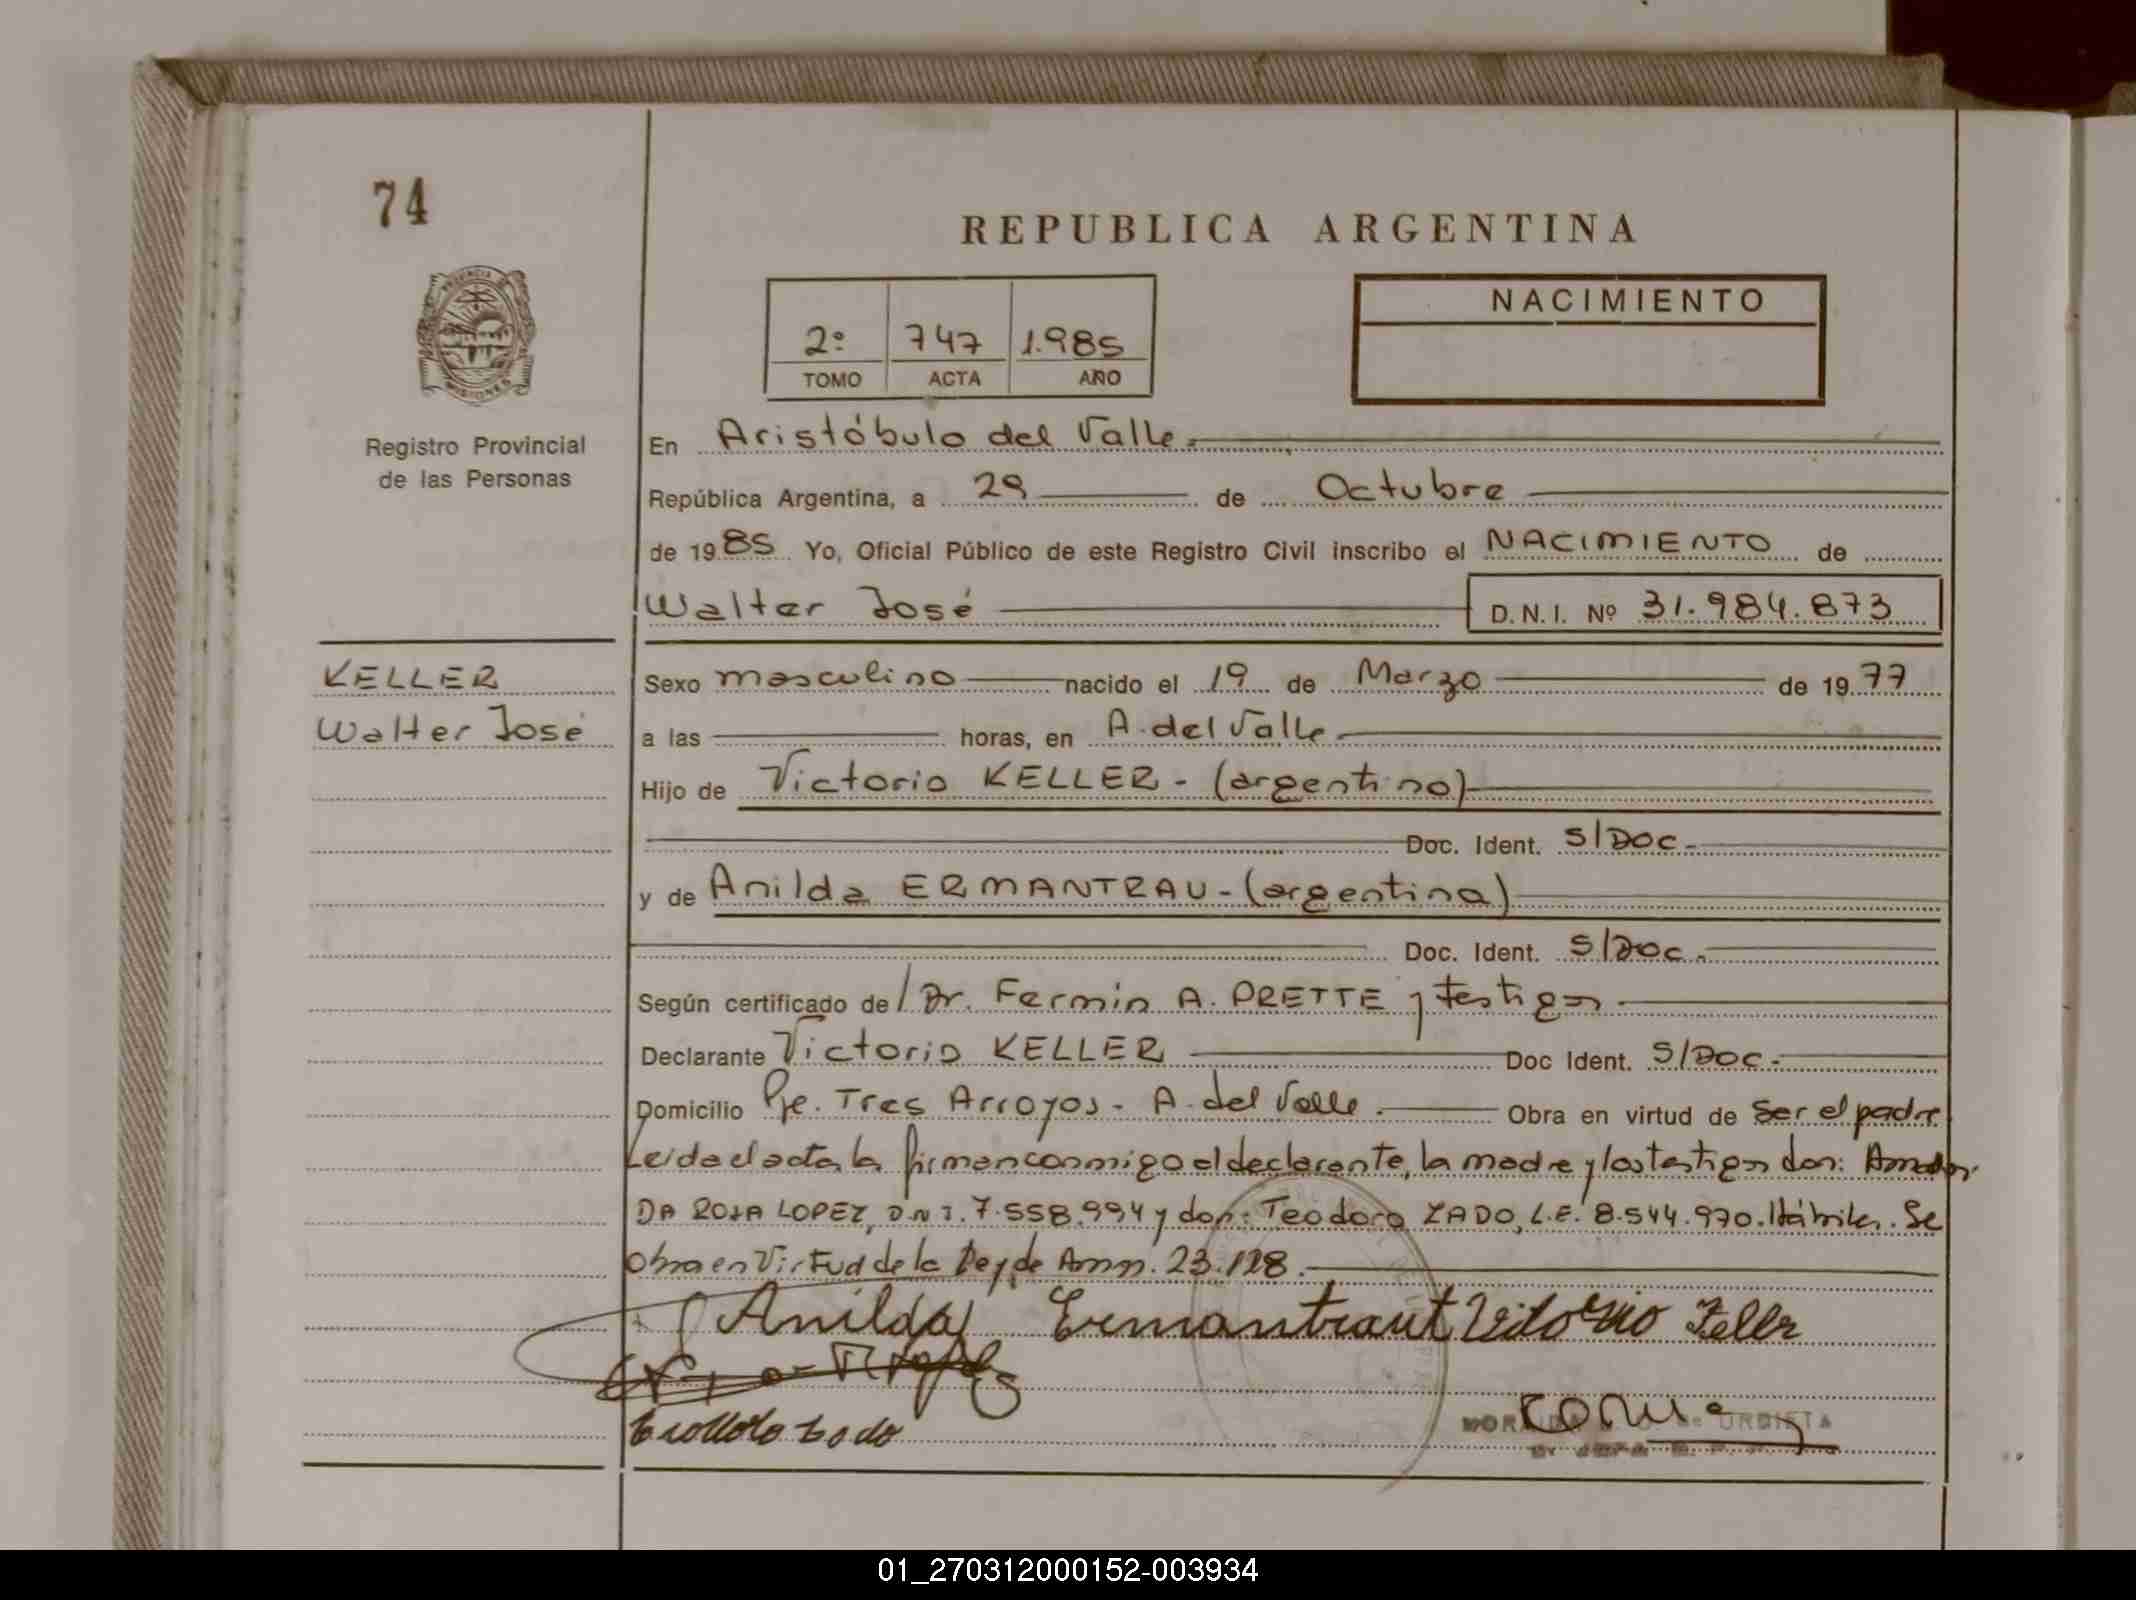 74
REPUBLICA ARGENTINA
NACIMIENTO
2º 747 1.985
TOMO ACTA AÑO
PROVINCIA
MISIONES
Registro Provincial
de las Personas
En Aristóbulo del Valle.
República Argentina, a 29 de Octubre
de 1985 Yo, Oficial Público de este Registro Civil inscribo el NACIMIENTO de
Walter José D.N.I. Nº 31.984.873
KELLER
Walter José
Sexo masculino nacido el 19 de Marzo de 1977
a las horas, en A. del Valle.
Hijo de Victorio KELLER - (argentino)
Doc. Ident. S/DOC.
y de Anilda ERMANTRAU - (argentina)
Doc. Ident. S/DOC.
Según certificado de / Dr. Fermin A. PRETTE y testigos
Declarante Victorio KELLER Doc Ident. S/DOC.
Domicilio Pje. Tres Arroyos - A. del Valle. Obra en virtud de ser el padre
Leída el acta la firman conmigo el declarante, la madre y los testigos don: Amador
DA ROSA LOPEZ, D.N.I. 7.558.994 y don: Teodoro ZADO, L.E. 8.544.970. Hábiles. Se
obra en Virtud de la Ley de Amn. 23.128.
Anilda Ermantraut
MOR DE URDIETA
01_270312000152-003934